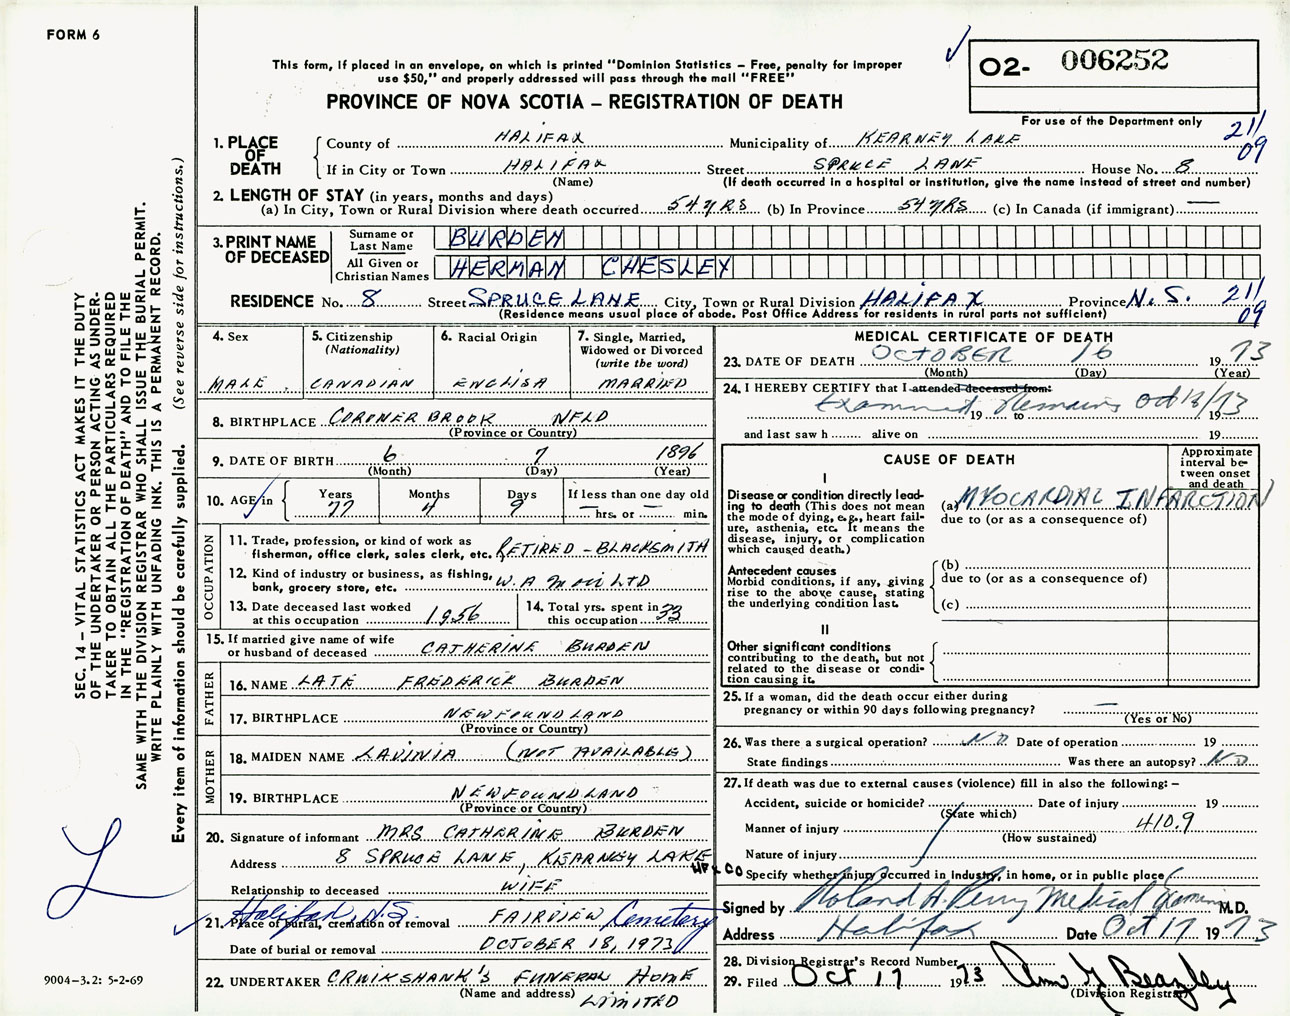 FORM 6
This form, if placed in an envelope, on which is printed "Dominion Statistics – Free, penalty for improper
use $50," and properly addressed will pass through the mail "FREE"
PROVINCE OF NOVA SCOTIA – REGISTRATION OF DEATH
O2- 006252
For use of the Department only
211
09
1. PLACE OF DEATH
County of HALIFAX Municipality of KEARNEY LAKE
If in City or Town HALIFAX Street SPRUCE LANE House No. 8
(Name) (If death occurred in a hospital or institution, give the name instead of street and number)
2. LENGTH OF STAY (in years, months and days)
(a) In City, Town or Rural Division where death occurred 54 YRS (b) In Province 54 YRS (c) In Canada (if immigrant) —
3. PRINT NAME OF DECEASED
Surname or Last Name BURDEN
All Given or Christian Names HERMAN CHESLEY
RESIDENCE No. 8 Street SPRUCE LANE City, Town or Rural Division HALIFAX Province N.S. 211
(Residence means usual place of abode. Post Office Address for residents in rural parts not sufficient) 09
4. Sex
MALE
5. Citizenship
(Nationality)
CANADIAN
6. Racial Origin
ENGLISH
7. Single, Married,
Widowed or Divorced
(write the word)
MARRIED
8. BIRTHPLACE CORONER BROOK NFLD
(Province or Country)
9. DATE OF BIRTH 6 7 1896
(Month) (Day) (Year)
10. AGE in
Years Months Days If less than one day old
77 4 9 — hrs. or — min.
OCCUPATION
11. Trade, profession, or kind of work as
fisherman, office clerk, sales clerk, etc. RETIRED – BLACKSMITH
12. Kind of industry or business, as fishing,
bank, grocery store, etc. W.A Moir LTD
13. Date deceased last worked
at this occupation 1956
14. Total yrs. spent in
this occupation 33
15. If married give name of wife
or husband of deceased CATHERINE BURDEN
FATHER
16. NAME LATE FREDERICK BURDEN
17. BIRTHPLACE NEWFOUNDLAND
(Province or Country)
MOTHER
18. MAIDEN NAME LAVINIA (NOT AVAILABLE)
19. BIRTHPLACE NEWFOUNDLAND
(Province or Country)
20. Signature of informant MRS CATHERINE BURDEN
Address 8 SPRUCE LANE, KEARNEY LAKE
HFX CO
Relationship to deceased WIFE
Halifax, N.S.
21. Place of burial, cremation or removal FAIRVIEW Cemetery
Date of burial or removal OCTOBER 18, 1973
22. UNDERTAKER CRUIKSHANK'S FUNERAL HOME
(Name and address) LIMITED
MEDICAL CERTIFICATE OF DEATH
23. DATE OF DEATH OCTOBER 16 1973
(Month) (Day) (Year)
24. I HEREBY CERTIFY that I attended deceased from:
Examined Remains Oct 18/73
19 to 19
and last saw h alive on 19
CAUSE OF DEATH
Approximate
interval be-
tween onset
and death
I
Disease or condition directly lead-
ing to death (This does not mean
the mode of dying, e.g., heart fail-
ure, asthenia, etc. It means the
disease, injury, or complication
which caused death.)
(a) MYOCARDIAL INFARCTION
due to (or as a consequence of)
Antecedent causes
Morbid conditions, if any, giving
rise to the above cause, stating
the underlying condition last.
(b)
due to (or as a consequence of)
(c)
II
Other significant conditions
contributing to the death, but not
related to the disease or condi-
tion causing it.
25. If a woman, did the death occur either during
pregnancy or within 90 days following pregnancy? —
(Yes or No)
26. Was there a surgical operation? NO Date of operation 19
State findings Was there an autopsy? NO
27. If death was due to external causes (violence) fill in also the following: –
Accident, suicide or homicide? Date of injury 19
(State which)
Manner of injury 410.9
(How sustained)
Nature of injury
Specify whether injury occurred in Industry, in home, or in public place
Signed by Roland A. Perry Medical Examiner M.D.
Address Halifax Date Oct 17 1973
28. Division Registrar's Record Number
29. Filed Oct 17 1973
(Division Registrar)
SEC. 14 – VITAL STATISTICS ACT MAKES IT THE DUTY
OF THE UNDERTAKER OR PERSON ACTING AS UNDER-
TAKER TO OBTAIN ALL THE PARTICULARS REQUIRED
IN THE "REGISTRATION OF DEATH" AND TO FILE THE
SAME WITH THE DIVISION REGISTRAR WHO SHALL ISSUE THE BURIAL PERMIT.
WRITE PLAINLY WITH UNFADING INK. THIS IS A PERMANENT RECORD.
Every item of information should be carefully supplied. (See reverse side for instructions.)
9004-3.2: 5-2-69